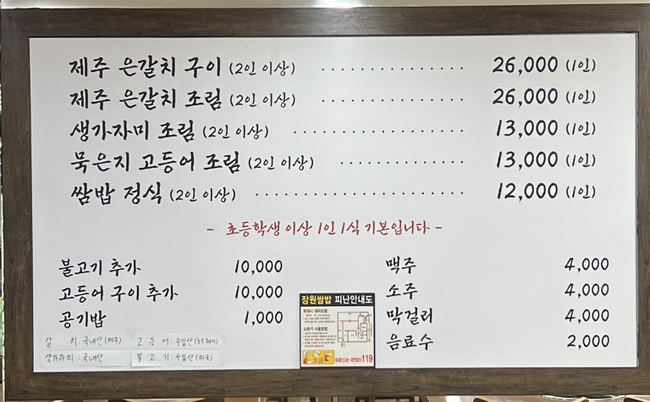 제주 은갈치 구이 (2인 이상) 26,000 (1인)
제주 은갈치 조림 (2인 이상) 26,000 (1인)
생가자미 조림 (2인 이상) 13,000 (1인)
묵은지 고등어 조림 (2인 이상) 13,000 (1인)
쌈밥 정식 (2인 이상) 12,000 (1인)
- 초등학생 이상 1인 1식 기본입니다 -
불고기 추가 10,000
고등어 구이 추가 10,000
공기밥 1,000
맥주 4,000
소주 4,000
막걸리 4,000
음료수 2,000
갈 치 : 국내산 (제주) 고 등 어 : 수입산 (노르웨이)
생가자미 : 국내산 불 고 기 : 수입산 (미국)
장원쌈밥 피난안내도
119